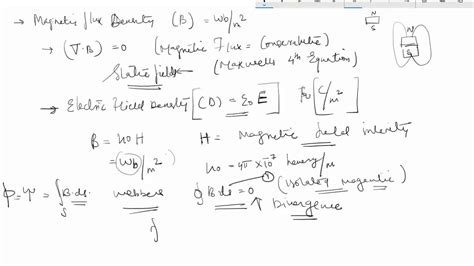 → Magnetic flux Density (B) = Wb/m²
N
S
→ (∇·B) = 0 (Magnetic Flux = Conservative)
N
S
Static fields (Maxwells 4th Equation)
→ Electric Field Density [(D) = ε₀ E] [C/m²]
B = μ₀ H H = Magnetic field intensity
= Wb/m² μ₀ = 4π × 10⁻⁷ henery/m
φ = ψ = ∫ B·ds. webbers ∮ B·ds = 0 (Isolated magentic)
S ↑ Divergence
∮